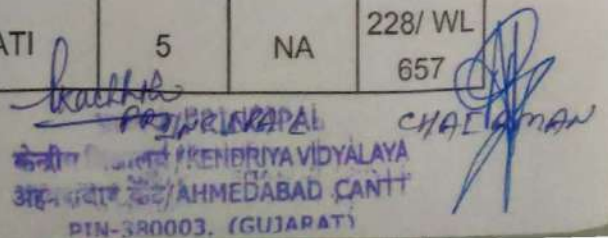 ATI 5 NA 228/ WL
657
PRINCIPAL CHAIRMAN
केन्द्रीय KENDRIYA VIDYALAYA
AHMEDABAD CANTT
PIN-380003. (GUJARAT)